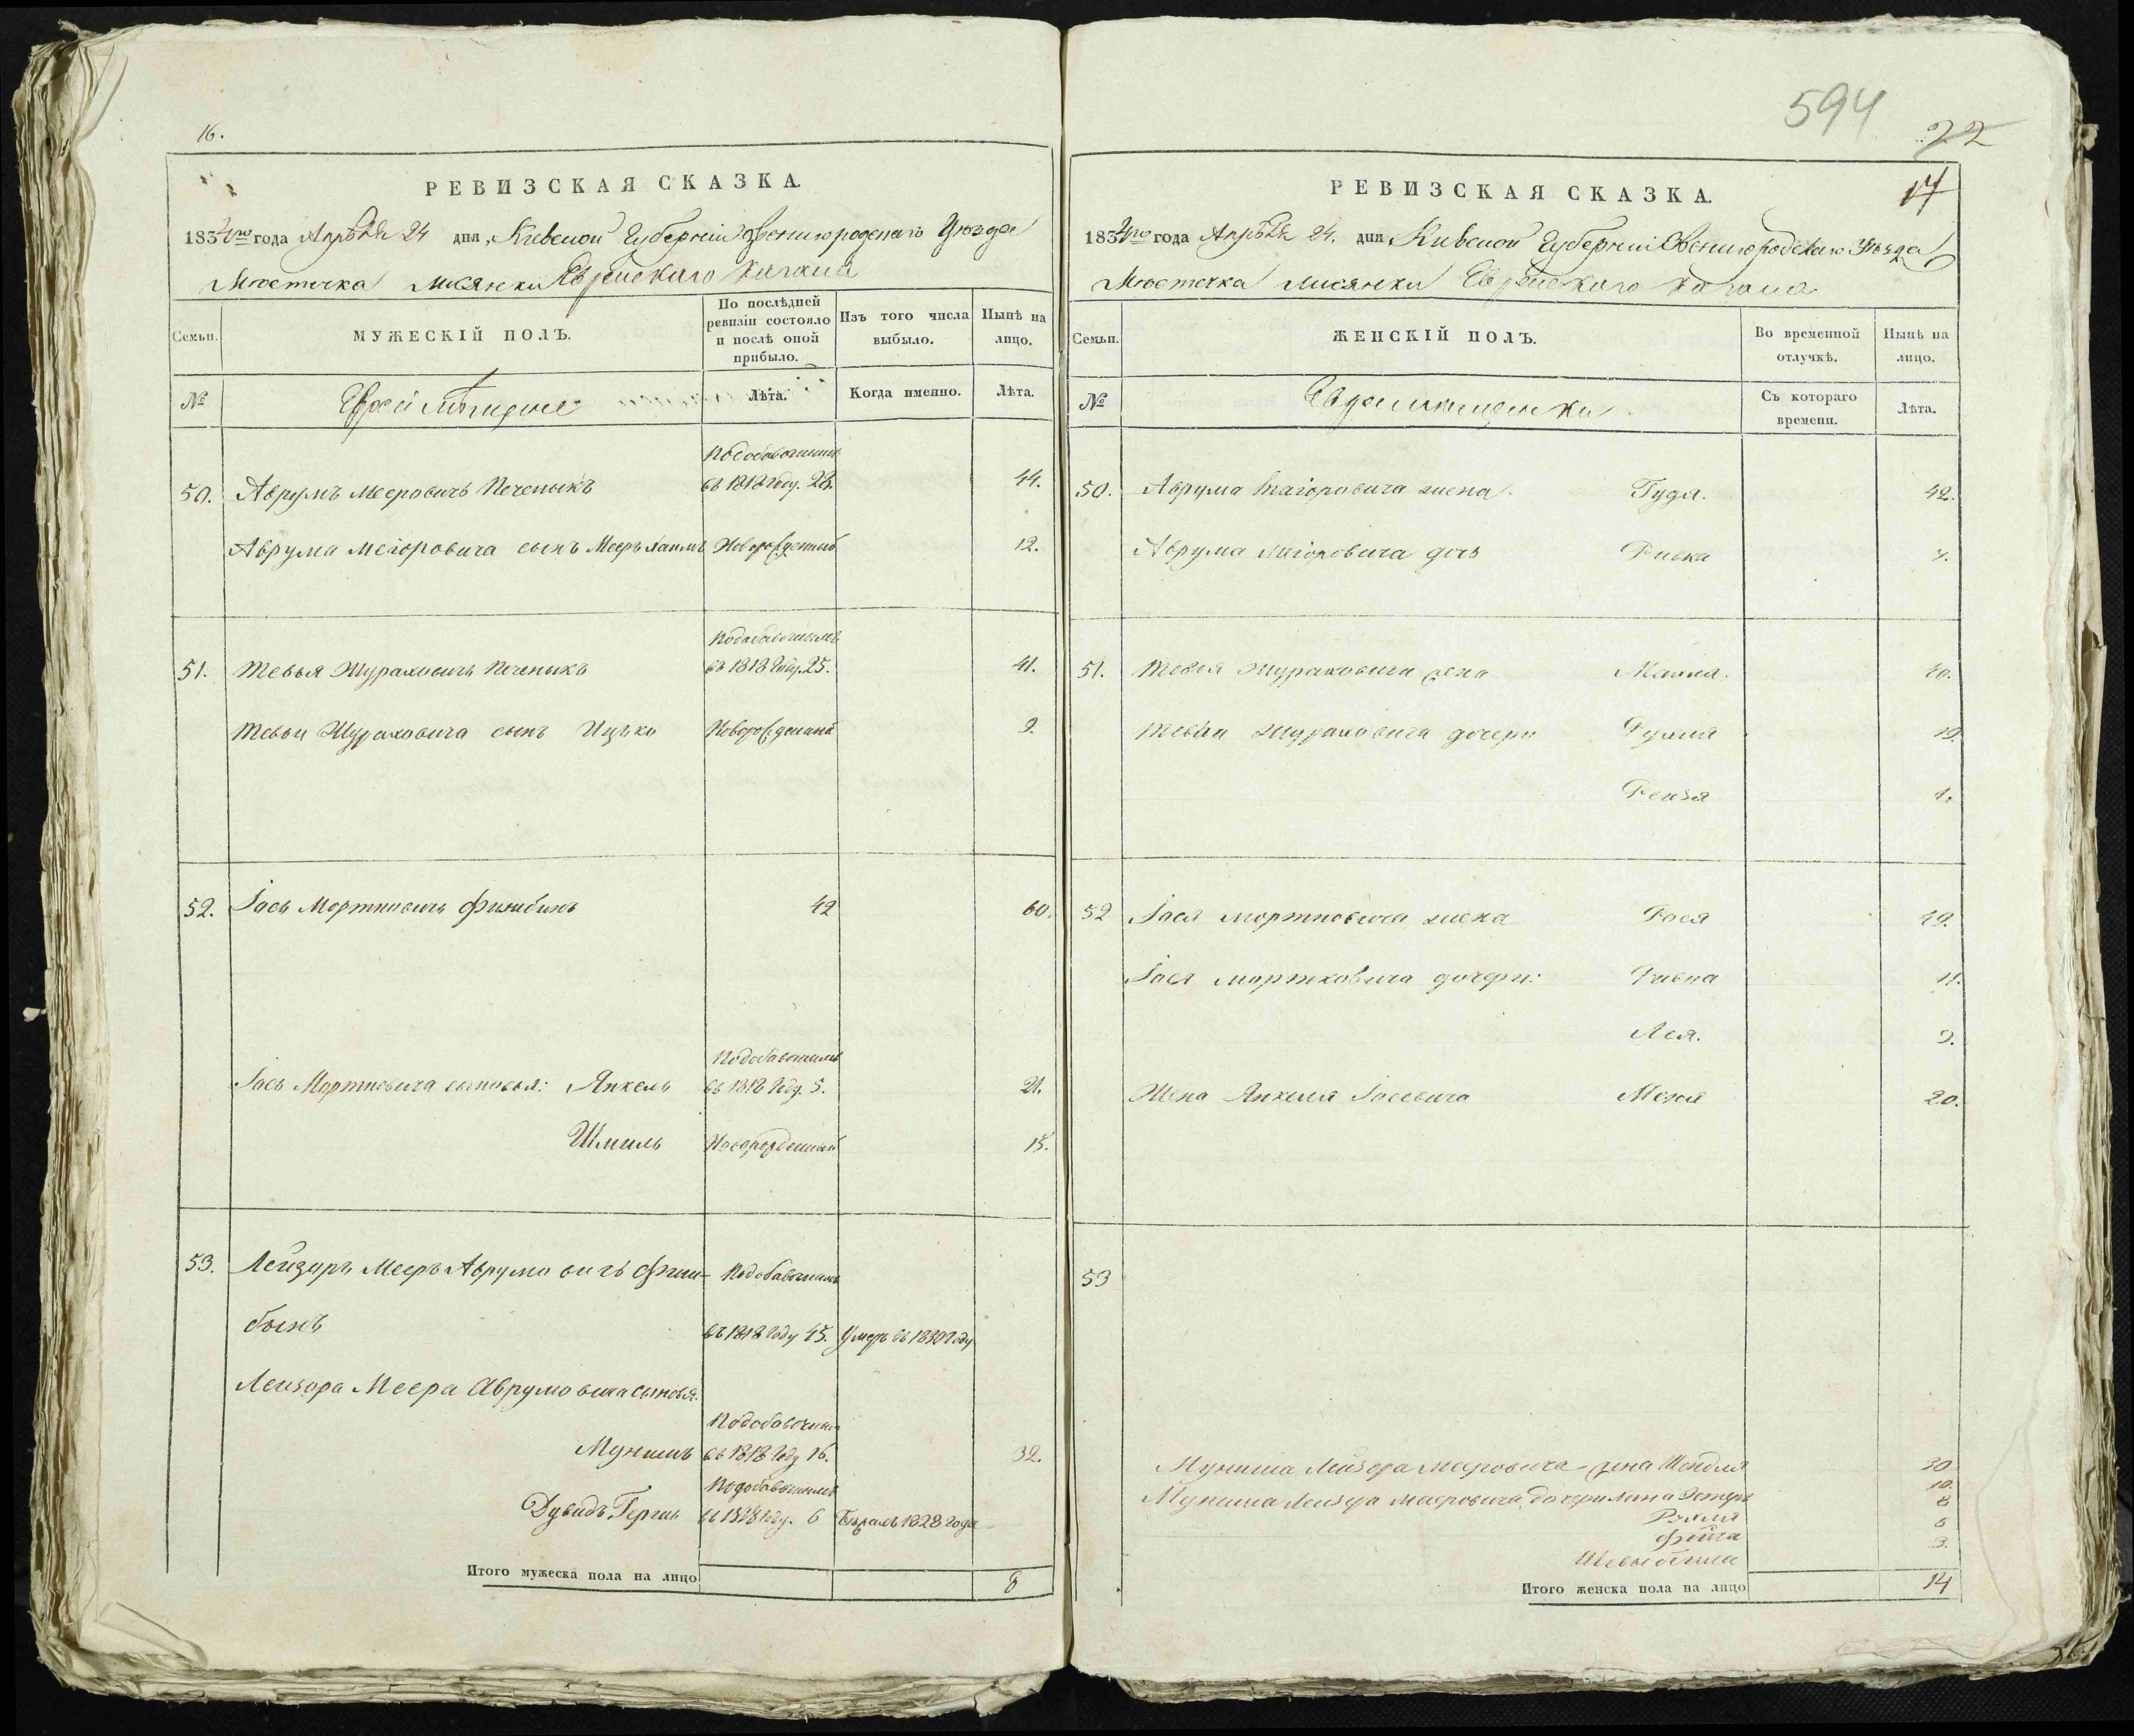 16.
РЕВИЗСКАЯ СКАЗКА.
1834го года Апрѣля 24 дня, Кіевской Губерніи Звенигородскаго Уѣзда
Мѣстечка Лисянки Еврейскаго Кагала
Семьи.
МУЖЕСКІЙ ПОЛЪ.
По послѣдней ревизіи состояло и послѣ оной прибыло.
Изъ того числа выбыло.
Нынѣ на лицо.
№
Евреи Мѣщане
Лѣта.
Когда именно.
Лѣта.
Подобавочнымъ
50. Аврумъ Мееровичъ Печеникъ въ 1818 году. 28. 44.
Аврума Меіоровича сынъ Мееръ Хаимъ Новорожденный 12.
Подобавочнымъ
51. Тевья Шураховичъ Печеникъ въ 1818 году. 25. 41.
Тевьи Шураховича сынъ Ицько Новорожденный 9.
52. Іось Мортковичъ 42 60.
Подобавочнымъ
Іось Мортковича сыновья: Янкель въ 1818 году. 5. 21.
Шмиль Новорожденный 15.
53. Лейзоръ Мееръ Аврумовичъ Подобавочнымъ
въ 1818 году 45. Умеръ въ 1830 году
Лейзора Меера Аврумовича сыновья.
Подобавочнымъ
Мунишъ въ 1818 году 16. 32.
Подобавочнымъ
Дувидъ Гершъ въ 1818 году. 6 1828 года
Итого мужеска пола на лицо 8
594
22
17
РЕВИЗСКАЯ СКАЗКА.
1834го года Апрѣля 24. дня Кіевской Губерніи Звенигородскаго Уѣзда
Мѣстечка Лисянки Еврейскаго Кагала
Семьи.
ЖЕНСКІЙ ПОЛЪ.
Во временной отлучкѣ.
Нынѣ на лицо.
№
Евреи мѣщанки
Съ котораго времени.
Лѣта.
50. Аврума Маіоровича жена Гудя. 42.
Аврума Маіоровича дочь Ривка
51. Тевья Шураховича жена 40.
Тевьи Шураховича дочери 19.
52 Іося Мортковича жена Рося 49.
Іося Мортковича дочери: Ривка 11.
Лея. 9.
Жена Янкеля Іосевича 20.
53
Муниша Лейзора Мееровича жена Шейдля 30
Муниша Лейзора Маеровича дочери 10.
8
6
Фейга
3.
Итого женска пола на лицо 14